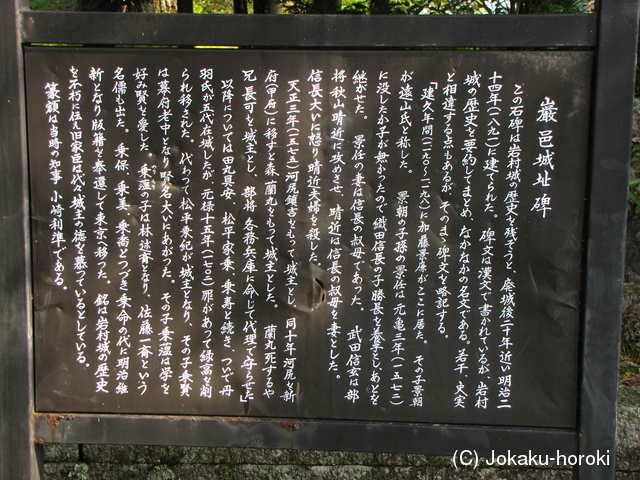 巖邑城址碑
この石碑は岩村城の歴史を残そうと、廃城後二十年近い明治二
十四年(一八九一)に建てられた。碑文は漢文で書かれているが、岩村
城の歴史を要約しまとめ、なかなかの名文である。若干、史実
と相違する点もあるが、そのまま碑文を略記する。
「建久年間(一一九〇〜一一九八)に加藤景廉がここに居た。その子景朝
が遠山氏と称した。景朝の子孫の景任は元亀三年(一五七二)
に没したが子が無かったので、織田信長の子勝長を養子としあとを
継がせた。景任の妻は信長の叔母であった。武田信玄は部
将秋山晴近に攻めさせ、晴近は信長の叔母を妻とした。
信長大いに怒り晴近夫婦を殺した。
天正三年(一五七五)河尻鎮吉をもって城主とし、同十年河尻を新
府(甲府)に移すと森蘭丸をもって城主とした。蘭丸死するや
兄長可を城主とし、部将各務兵庫に令して代理で守らせた。
以降については田丸具安、松平家乗、乗寿と続き、ついで丹
羽氏が五代在城したが、元禄十五年(一七〇二)罪があって禄高を削
られ移された。代わって松平乗紀が城主となり、その子乗賢
は幕府老中となり野名大いにあがった。その子乗薀は学を
好み賢を愛した。乗薀の子は林述斉となり、佐藤一斉という
名儒も出た。乗保、乗美、乗喬とつづき乗命の代に明治維
新となり版籍を奉還して東京へ移った。銘は岩村城の歴史
を不朽に伝え旧家臣は代々城主の徳を慕っているとしている。
篆額は当時の知事小崎利準である。
(C) Jokaku-horoki